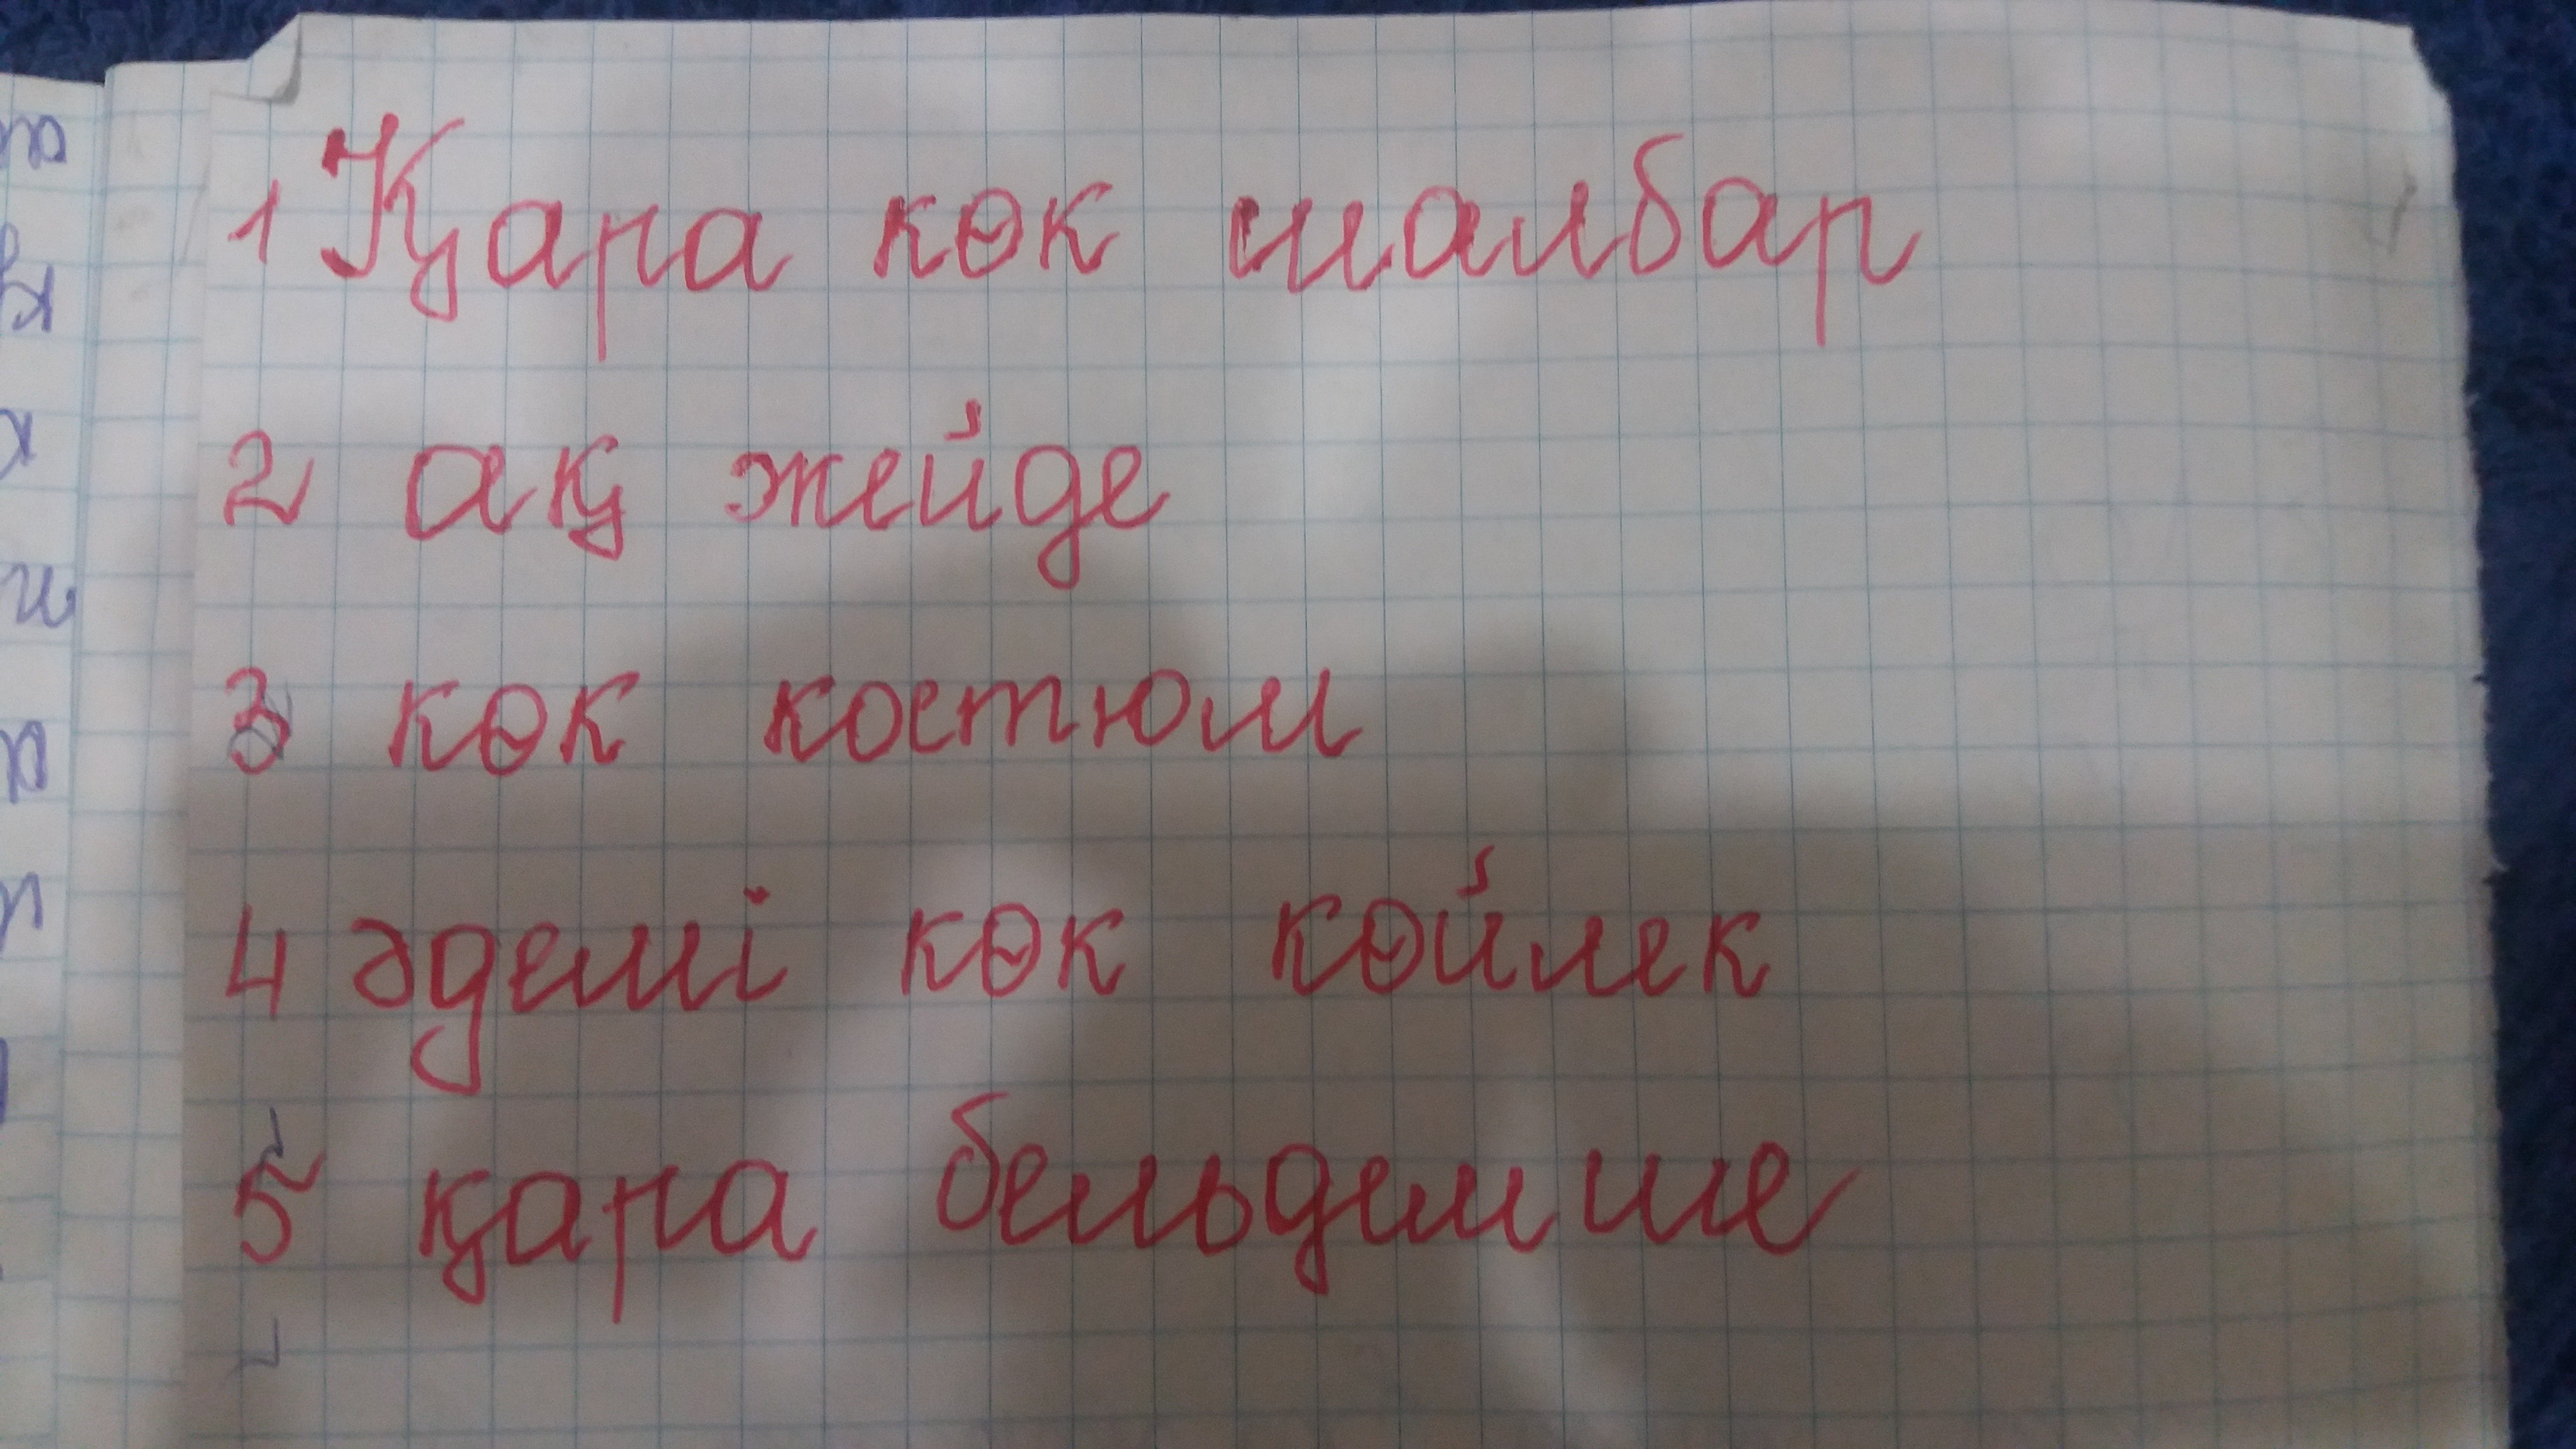 1 Қара көк шалбар
2 ақ жейде
3 көк костюм
4 әдемі көк көйлек
5 қара бельдемше